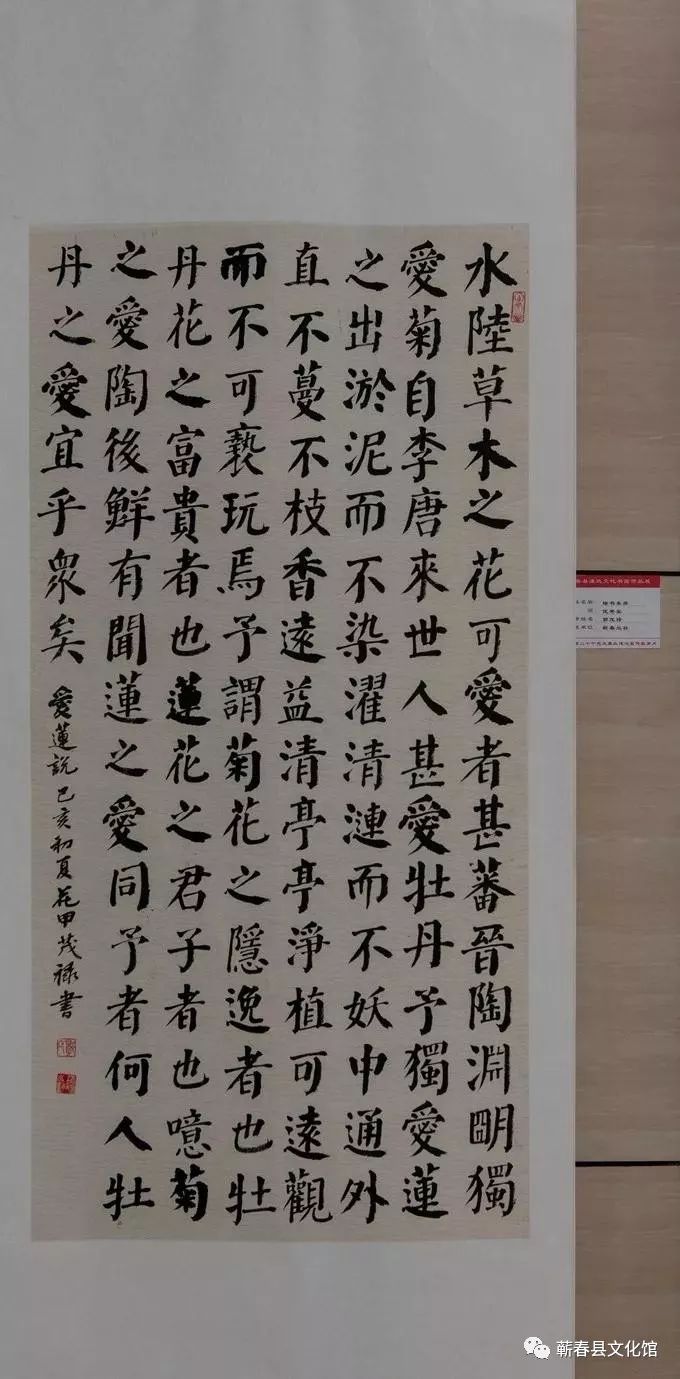 水陸草木之花可愛者甚蕃晉陶淵明獨
愛菊自李唐來世人甚愛牡丹予獨愛蓮
之出淤泥而不染濯清漣而不妖中通外
直不蔓不枝香遠益清亭亭淨植可遠觀
而不可褻玩焉予謂菊花之隱逸者也牡
丹花之富貴者也蓮花之君子者也噫菊
之愛陶後鮮有聞蓮之愛同予者何人牡
丹之愛宜乎眾矣
愛蓮說己亥初夏花甲茂祿書
蕲春县文化馆